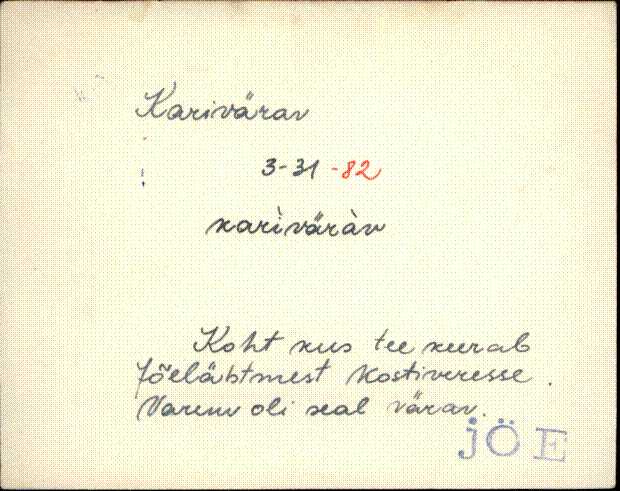 Karivärav
3-31-82
karìväràv
Koht kus tee keerab
Jõelähtmest Kostiveresse.
Varem oli seal värav.
JÕE